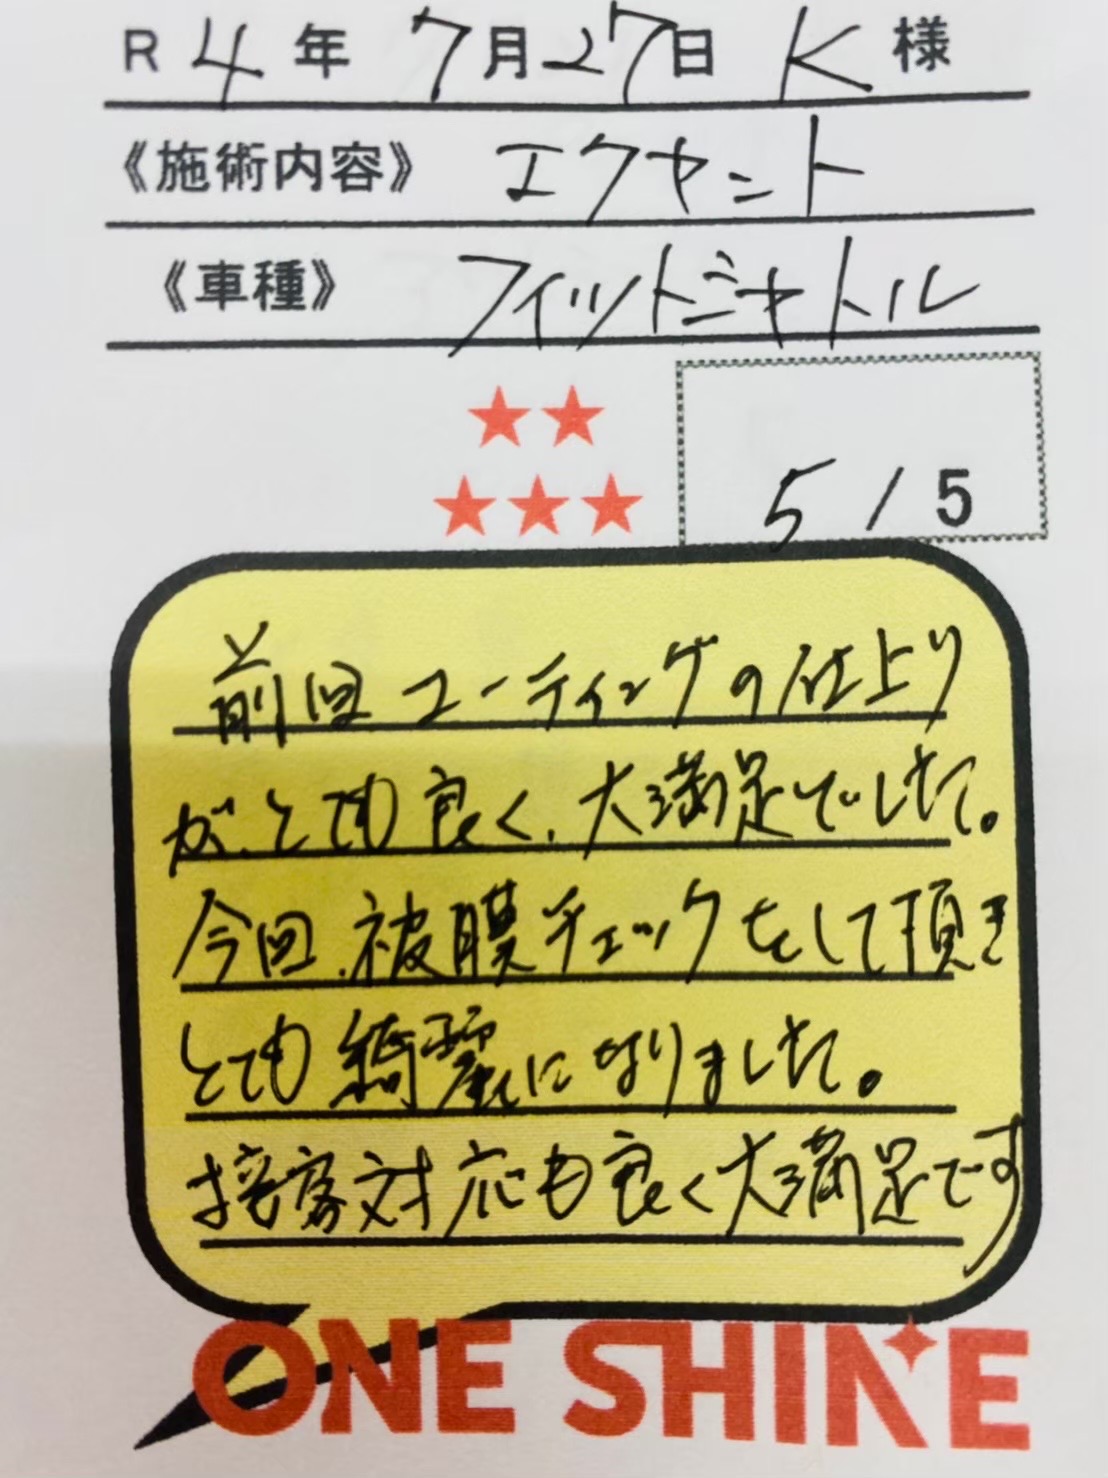 R 4年 7月27日 K 様
《施術内容》 エクヤント
《車種》 フィットシャトル
5 / 5
前回コーティングの仕上り
が、とても良く、大満足でした。
今回、被膜チェックをして頂き
とても綺麗になりました。
接客対応も良く大満足です
ONE SHINE